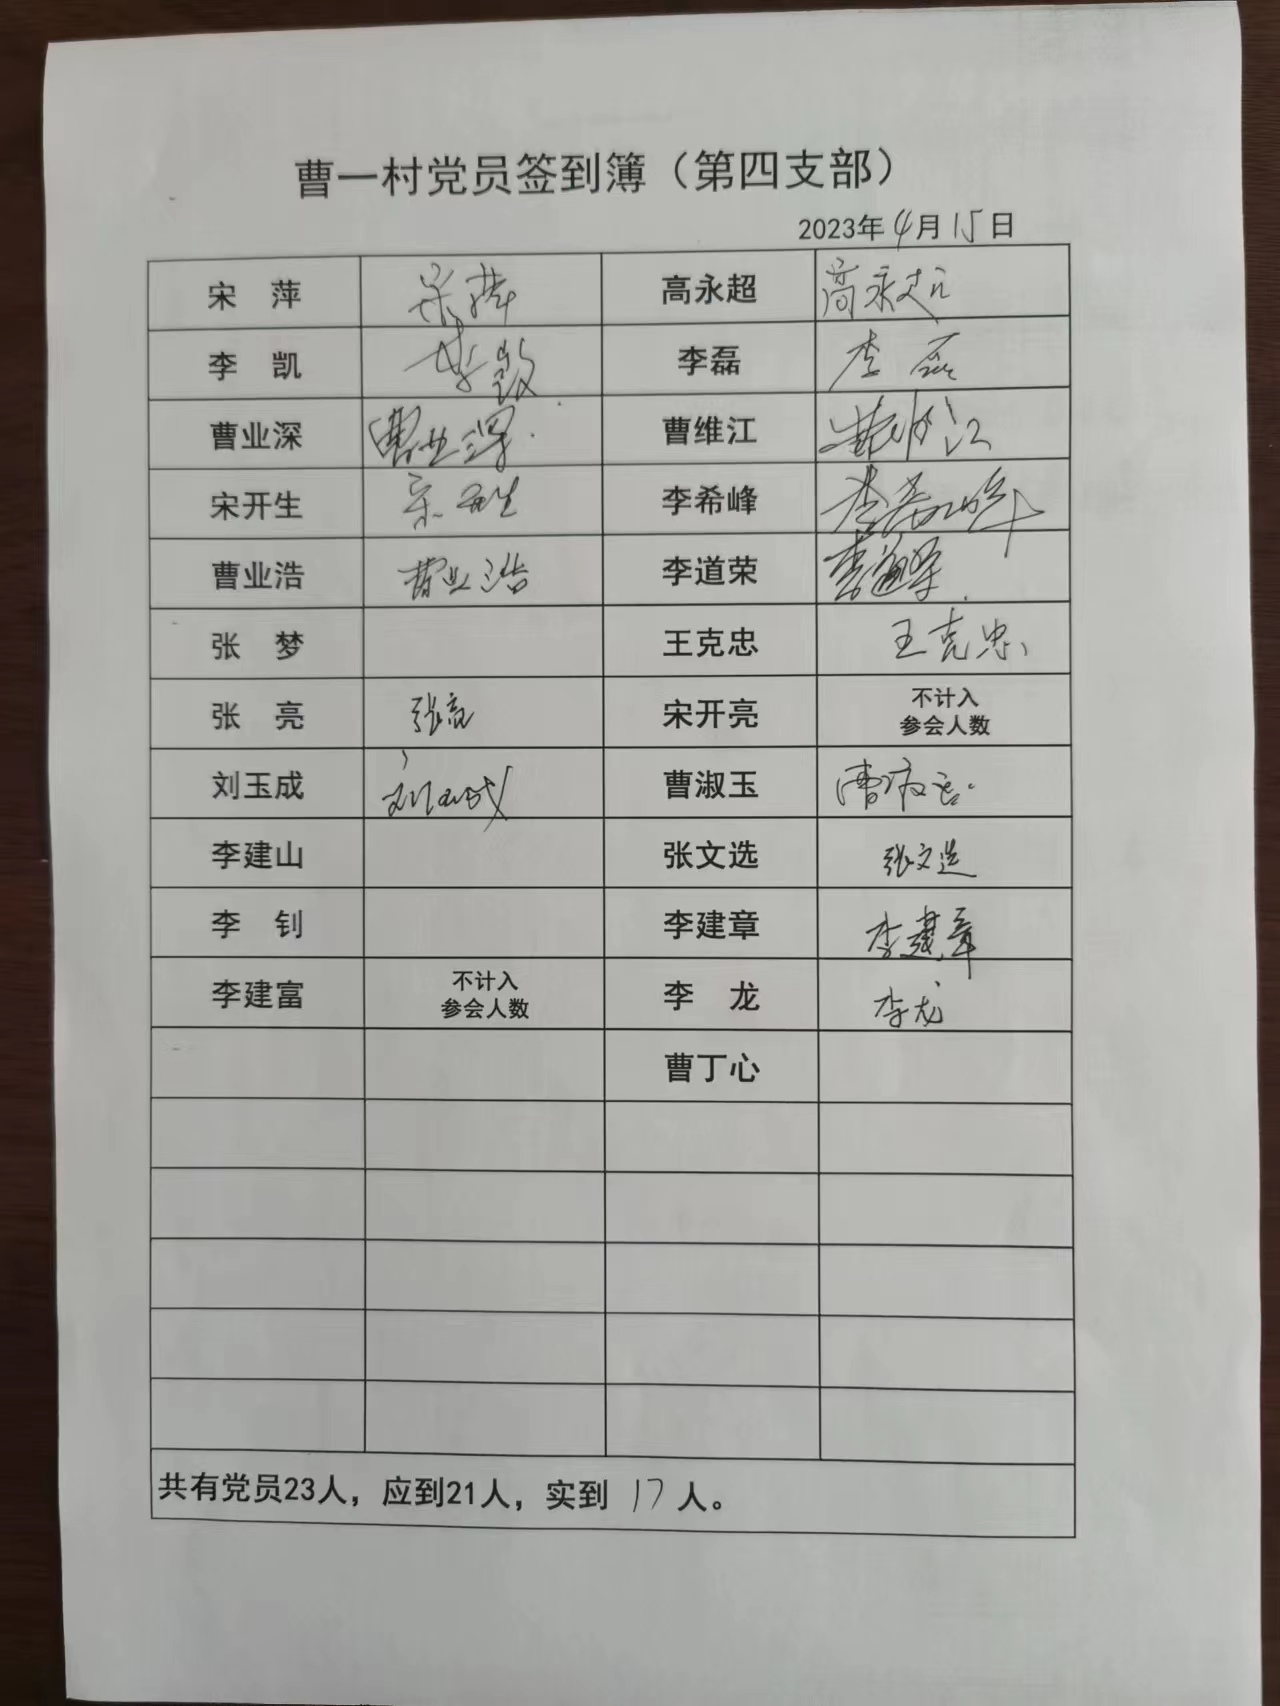 曹一村党员签到簿（第四支部）
2023年4月15日
宋 萍 宋萍 高永超 高永超
李 凯 李凯 李磊 李磊
曹业深 曹业深 曹维江 曹维江
宋开生 宋开生 李希峰 李希峰
曹业浩 曹业浩 李道荣 李道荣
张 梦 王克忠 王克忠
张 亮 张亮 宋开亮 不计入
参会人数
刘玉成 刘玉成 曹淑玉 曹淑玉
李建山 张文选 张文选
李 钊 李建章 李建章
李建富 不计入
参会人数 李 龙 李龙
曹丁心
共有党员23人，应到21人，实到 17 人。